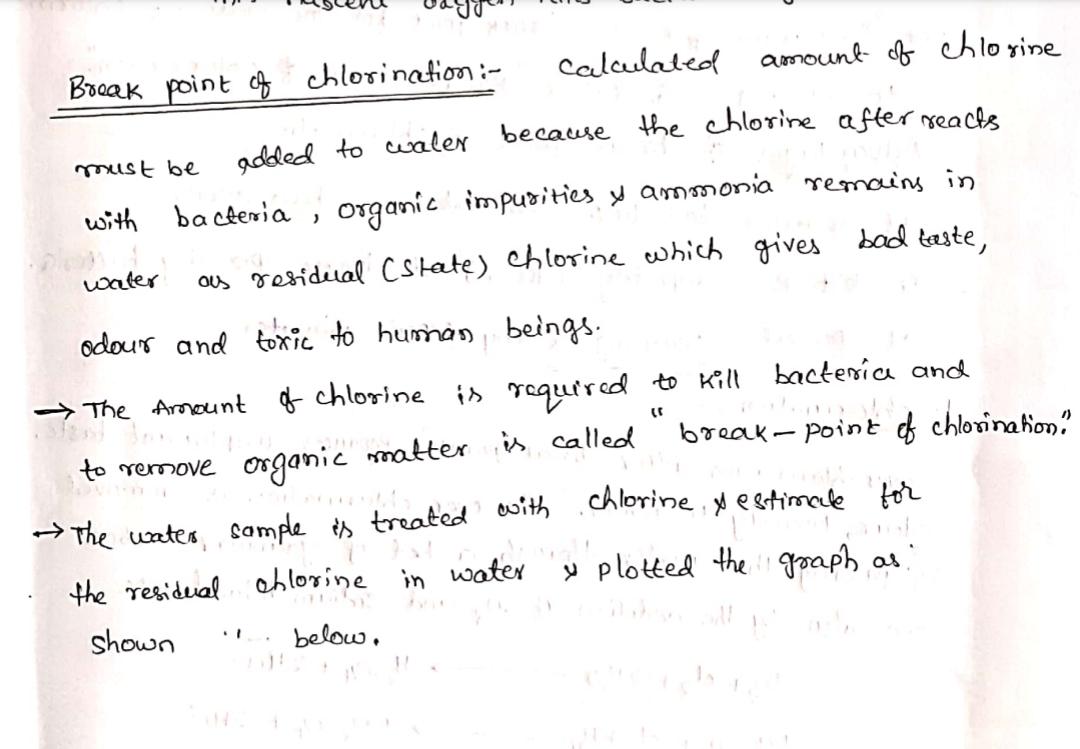 oxygen
Break point of chlorination :- Calculated amount of chlorine
must be added to water because the chlorine after reacts
with bacteria, organic impurities & ammonia remains in
water as residual (state) chlorine which gives bad taste,
odour and toxic to human beings.
→ The Amount of chlorine is required to kill bacteria and
to remove organic matter is called "break-point of chlorination."
→ The water sample is treated with chlorine & estimate for
the residual chlorine in water & plotted the graph as
shown below.